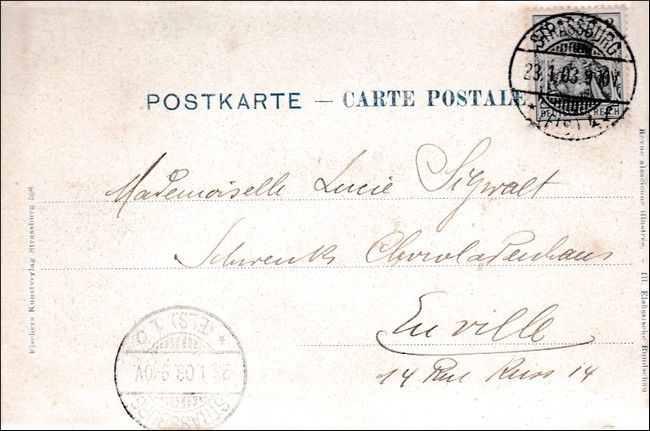 STRASSBURG
23.1.03.9-10V.
* (ELS) 1 *
DEUTSCHES REICH
POSTKARTE — CARTE POSTALE
Mademoiselle Lucie Sigwalt
Schwenks Chocoladenhaus
En ville
14 Rue Kuss 14
STRASSBURG
23.1.03.9-10V.
* (ELS) 1
Fischers Kunstverlag Strassburg
Revue alsacienne illustrée. — Ill. Elsässische Rundschau